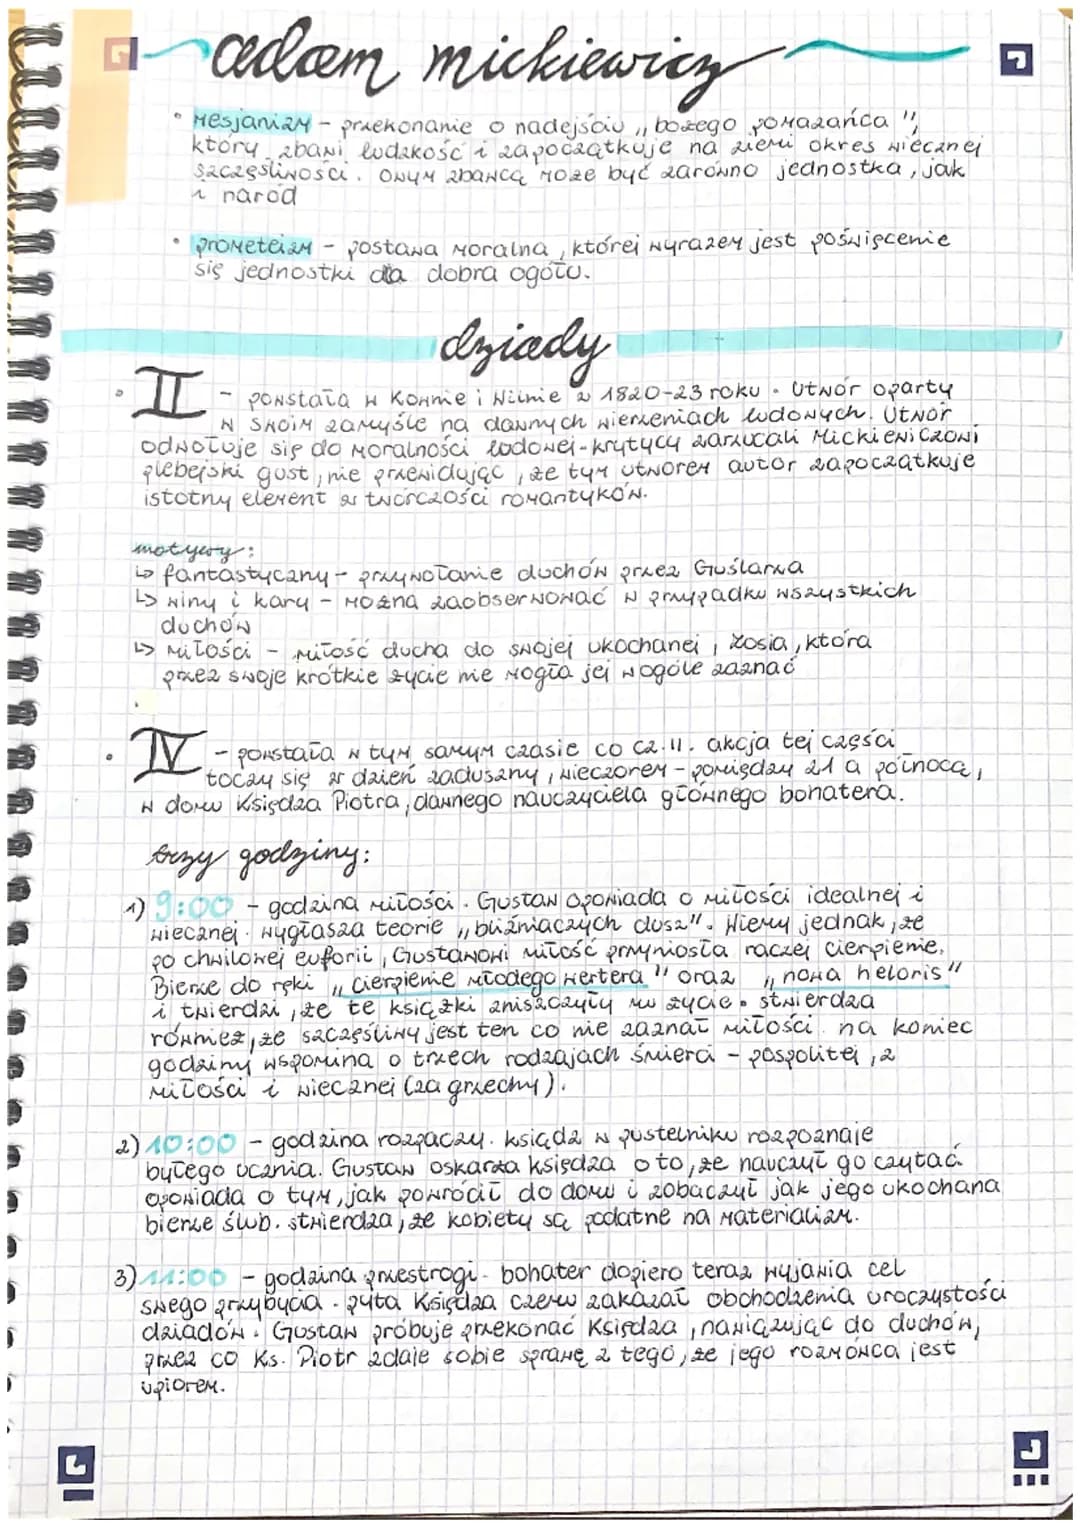 adam mickiewicz
• mesjanizm – przekonanie o nadejściu „bożego pomazańca",
który zbawi ludzkość i zapoczątkuje na ziemi okres wiecznej
szczęśliwości. onym zbawcą może być zarówno jednostka, jak
i naród
• prometeizm – postawa moralna, której wyrazem jest poświęcenie
się jednostki dla dobra ogółu.
dziady
• II – powstała w Kownie i Wilnie w 1820-23 roku. Utwór oparty
w swoim zamyśle na dawnych wierzeniach ludowych. Utwór
odwołuje się do moralności ludowej - krytycy zarzucali Mickiewiczowi
plebejski gust, nie przewidując, że tym utworem autor zapoczątkuje
istotny element w twórczości romantyków.
motywy:
↳ fantastyczny - przywołanie duchów przez Guślarza
↳ winy i kary – można zaobserwować w przypadku wszystkich
duchów
↳ miłości – miłość ducha do swojej ukochanej, Zosia, która
przez swoje krótkie życie nie mogła jej wogóle zaznać
• IV – powstała w tym samym czasie co cz. II. akcja tej części
toczy się w dzień zaduszny, wieczorem – pomiędzy 21 a północą,
w domu Księdza Piotra, dawnego nauczyciela głównego bohatera.
trzy godziny:
1) 9:00 – godzina miłości. Gustaw opowiada o miłości idealnej i
wiecznej. wygłasza teorie „bliźniaczych dusz". Wiemy jednak, że
po chwilowej euforii, Gustawowi miłość przyniosła raczej cierpienie.
Bierze do ręki „cierpienie młodego wertera" oraz „nowa heloris"
i twierdzi, że te książki zniszczyły mu życie. stwierdza
również, że szczęśliwy jest ten co nie zaznał miłości. na koniec
godziny wspomina o trzech rodzajach śmierci – pospolitej, z
miłości i wiecznej (za grzechy).
2) 10:00 – godzina rozpaczy. ksiądz w pustelniku rozpoznaje
byłego ucznia. Gustaw oskarża księdza o to, że nauczył go czytać.
opowiada o tym, jak powrócił do domu i zobaczył jak jego ukochana
bierze ślub. stwierdza, że kobiety są podatne na materializm.
3) 11:00 – godzina przestrogi. bohater dopiero teraz wyjawia cel
swego przybycia. pyta Księdza czemu zakazał obchodzenia uroczystości
dziadów. Gustaw próbuje przekonać Księdza, nawiązując do duchów,
przez co Ks. Piotr zdaje sobie sprawę z tego, że jego rozmówca jest
upiorem.